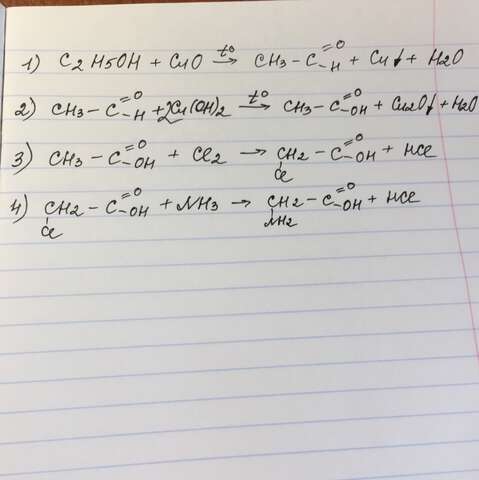 1) C2H5OH + CuO →t° CH3-C=O-H + Cu↓ + H2O
2) CH3-C=O-H + 2Cu(OH)2 →t° CH3-C=O-OH + Cu2O↓ + H2O
3) CH3-C=O-OH + Cl2 → CH2-C=O-OH + HCl
Cl
4) CH2-C=O-OH + NH3 → CH2-C=O-OH + HCl
Cl NH2